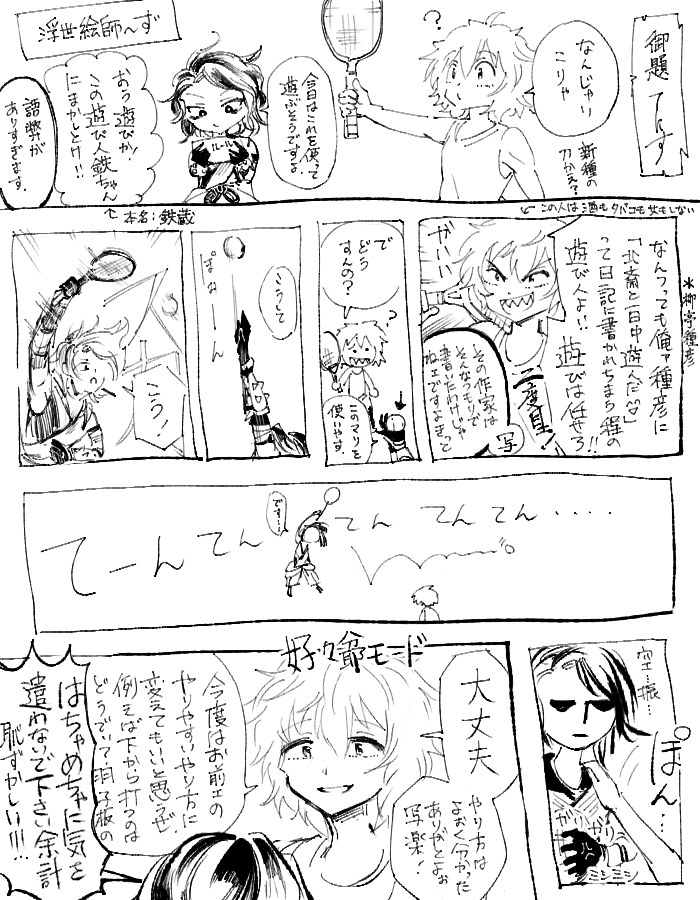 浮世絵師〜ず
御題 てにす
なんじゃい
こりゃ
?
新種の
刀かぇ?
今日はこれを使って
遊ぶそうですよ
ルール
おう遊びか!
この遊び人鉄ちゃん
にまかしとけ!!
語弊が
ありすぎます。
↑本名:鉄蔵
←この人は酒もタバコも女もしない
*柳亭種彦
なんつっても俺ァ種彦に
「北斎と一日中遊んだ♡」
って日記に書かれちまう程の
遊び人よ!!遊びは任せろ!!
がいい
その作家は
そんなつもりで
書いたわけじゃ
ねェですよきって
写
で
どう
すんの?
?
このマリを
使いやす。
こうして
ぽぉーん
こう!
てーんてんてんてんてん・・・・
です…
空…振…
ぽん…
がりがり
ミシミシ
好々爺モード
大丈夫
やり方は
よおく分かった
ありがとよぉ
写楽!
今度はお前ェの
やりやすいやり方に
変えてもいいと思うぜ
例えば下から打つのは
どうでい?羽子板の
はちゃめちゃに気を
遣わないで下さい余計
恥ずかしい!!!